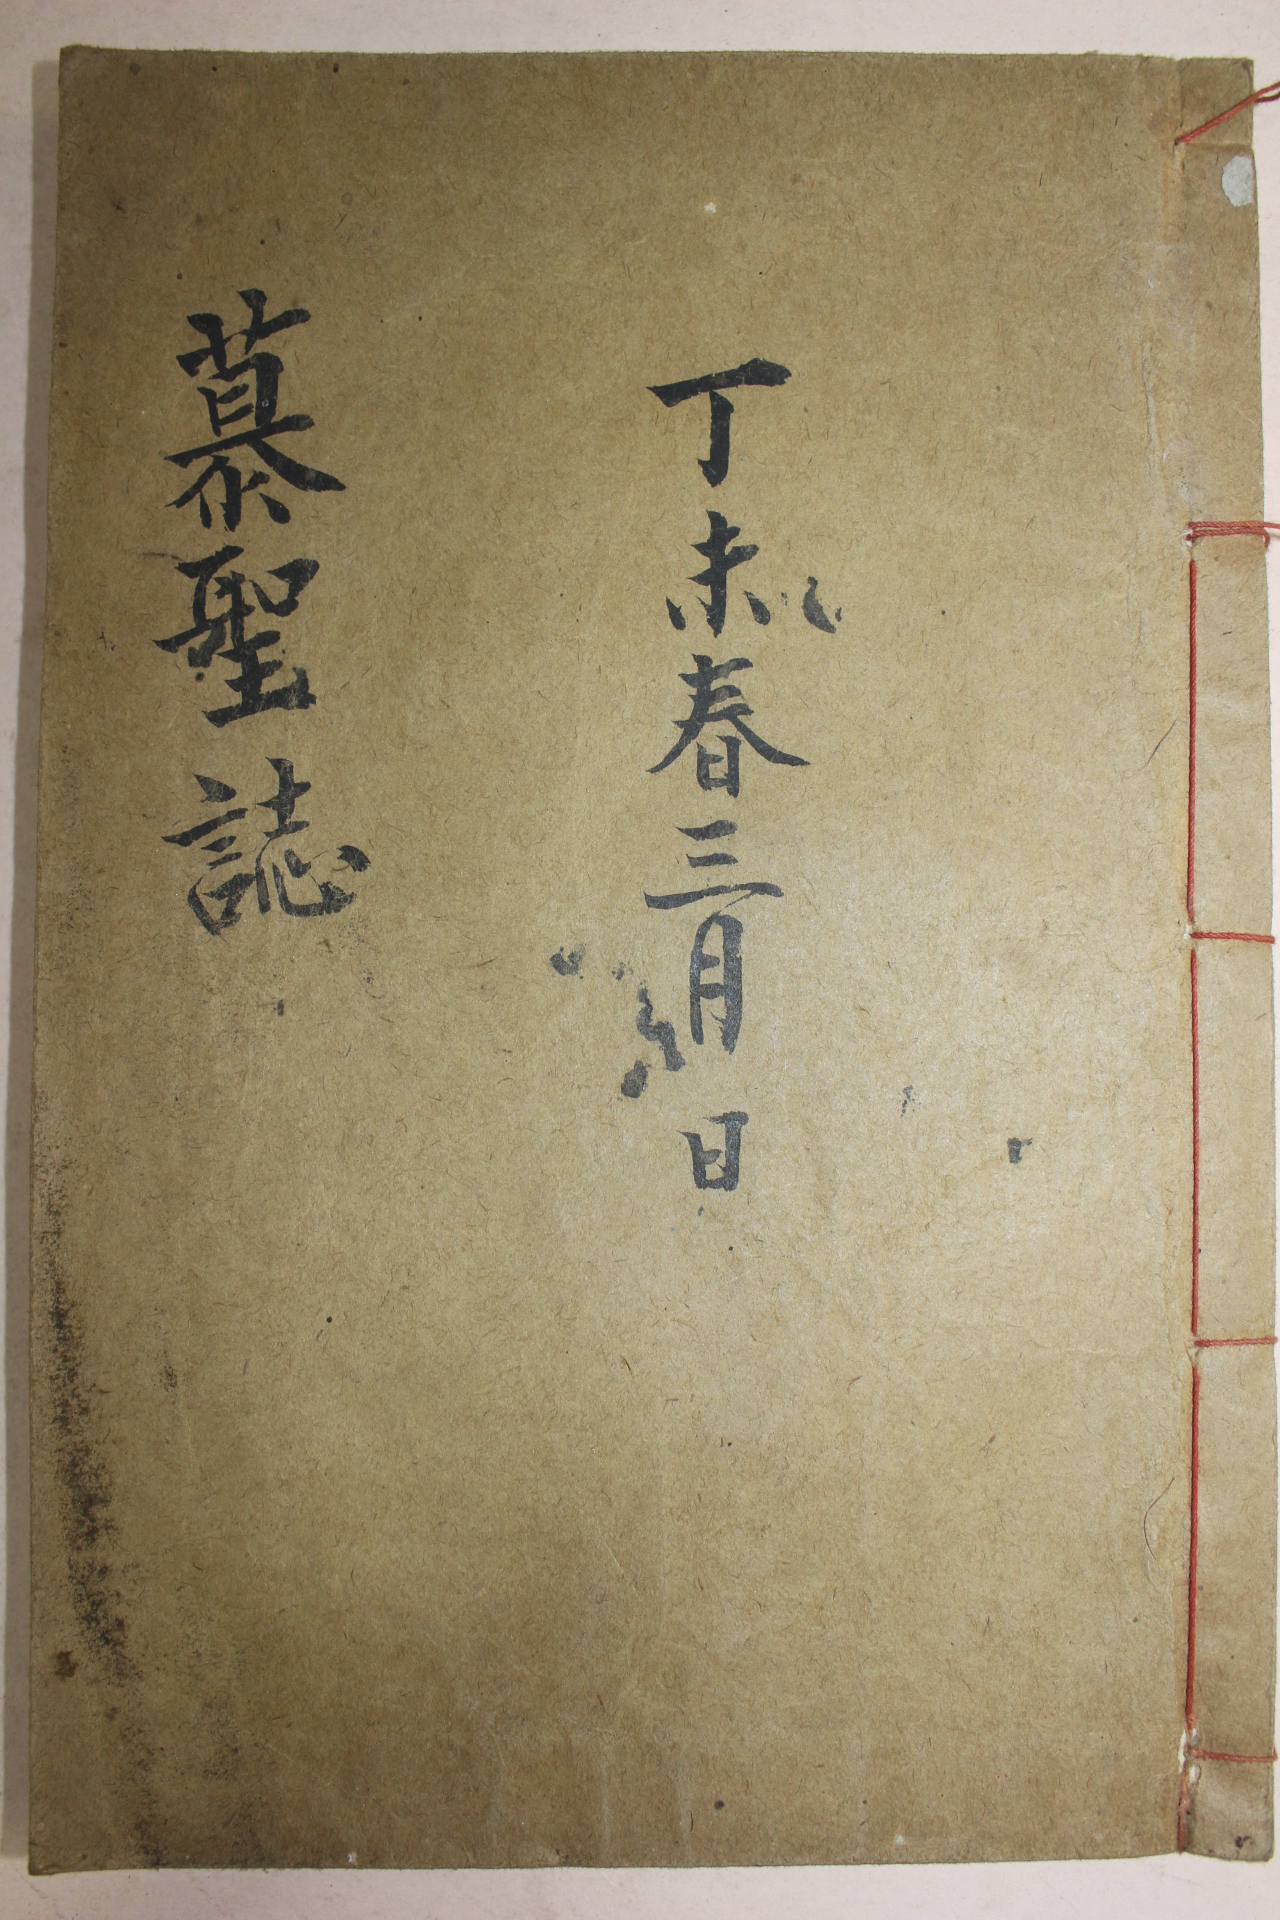 丁未春三月 日
慕聖誌